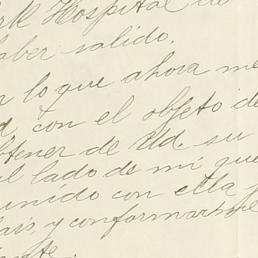 rk Hospital de
aber salido.
r lo que ahora me
d, con el objeto de
btener de Ud. su
al lado de mi que
unido con ella y
ais, y conformarme
ante.